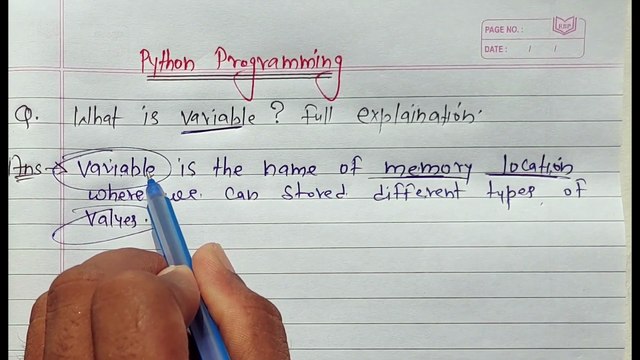 PAGE NO.:
DATE: / /
Python Programming
Q. What is variable? full explaination.
Ans→ Variable is the name of memory location
where we can stored different types of
values.